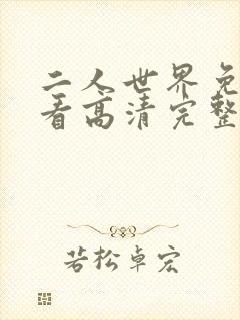 二人世界免
看高清完整
若松卓宏